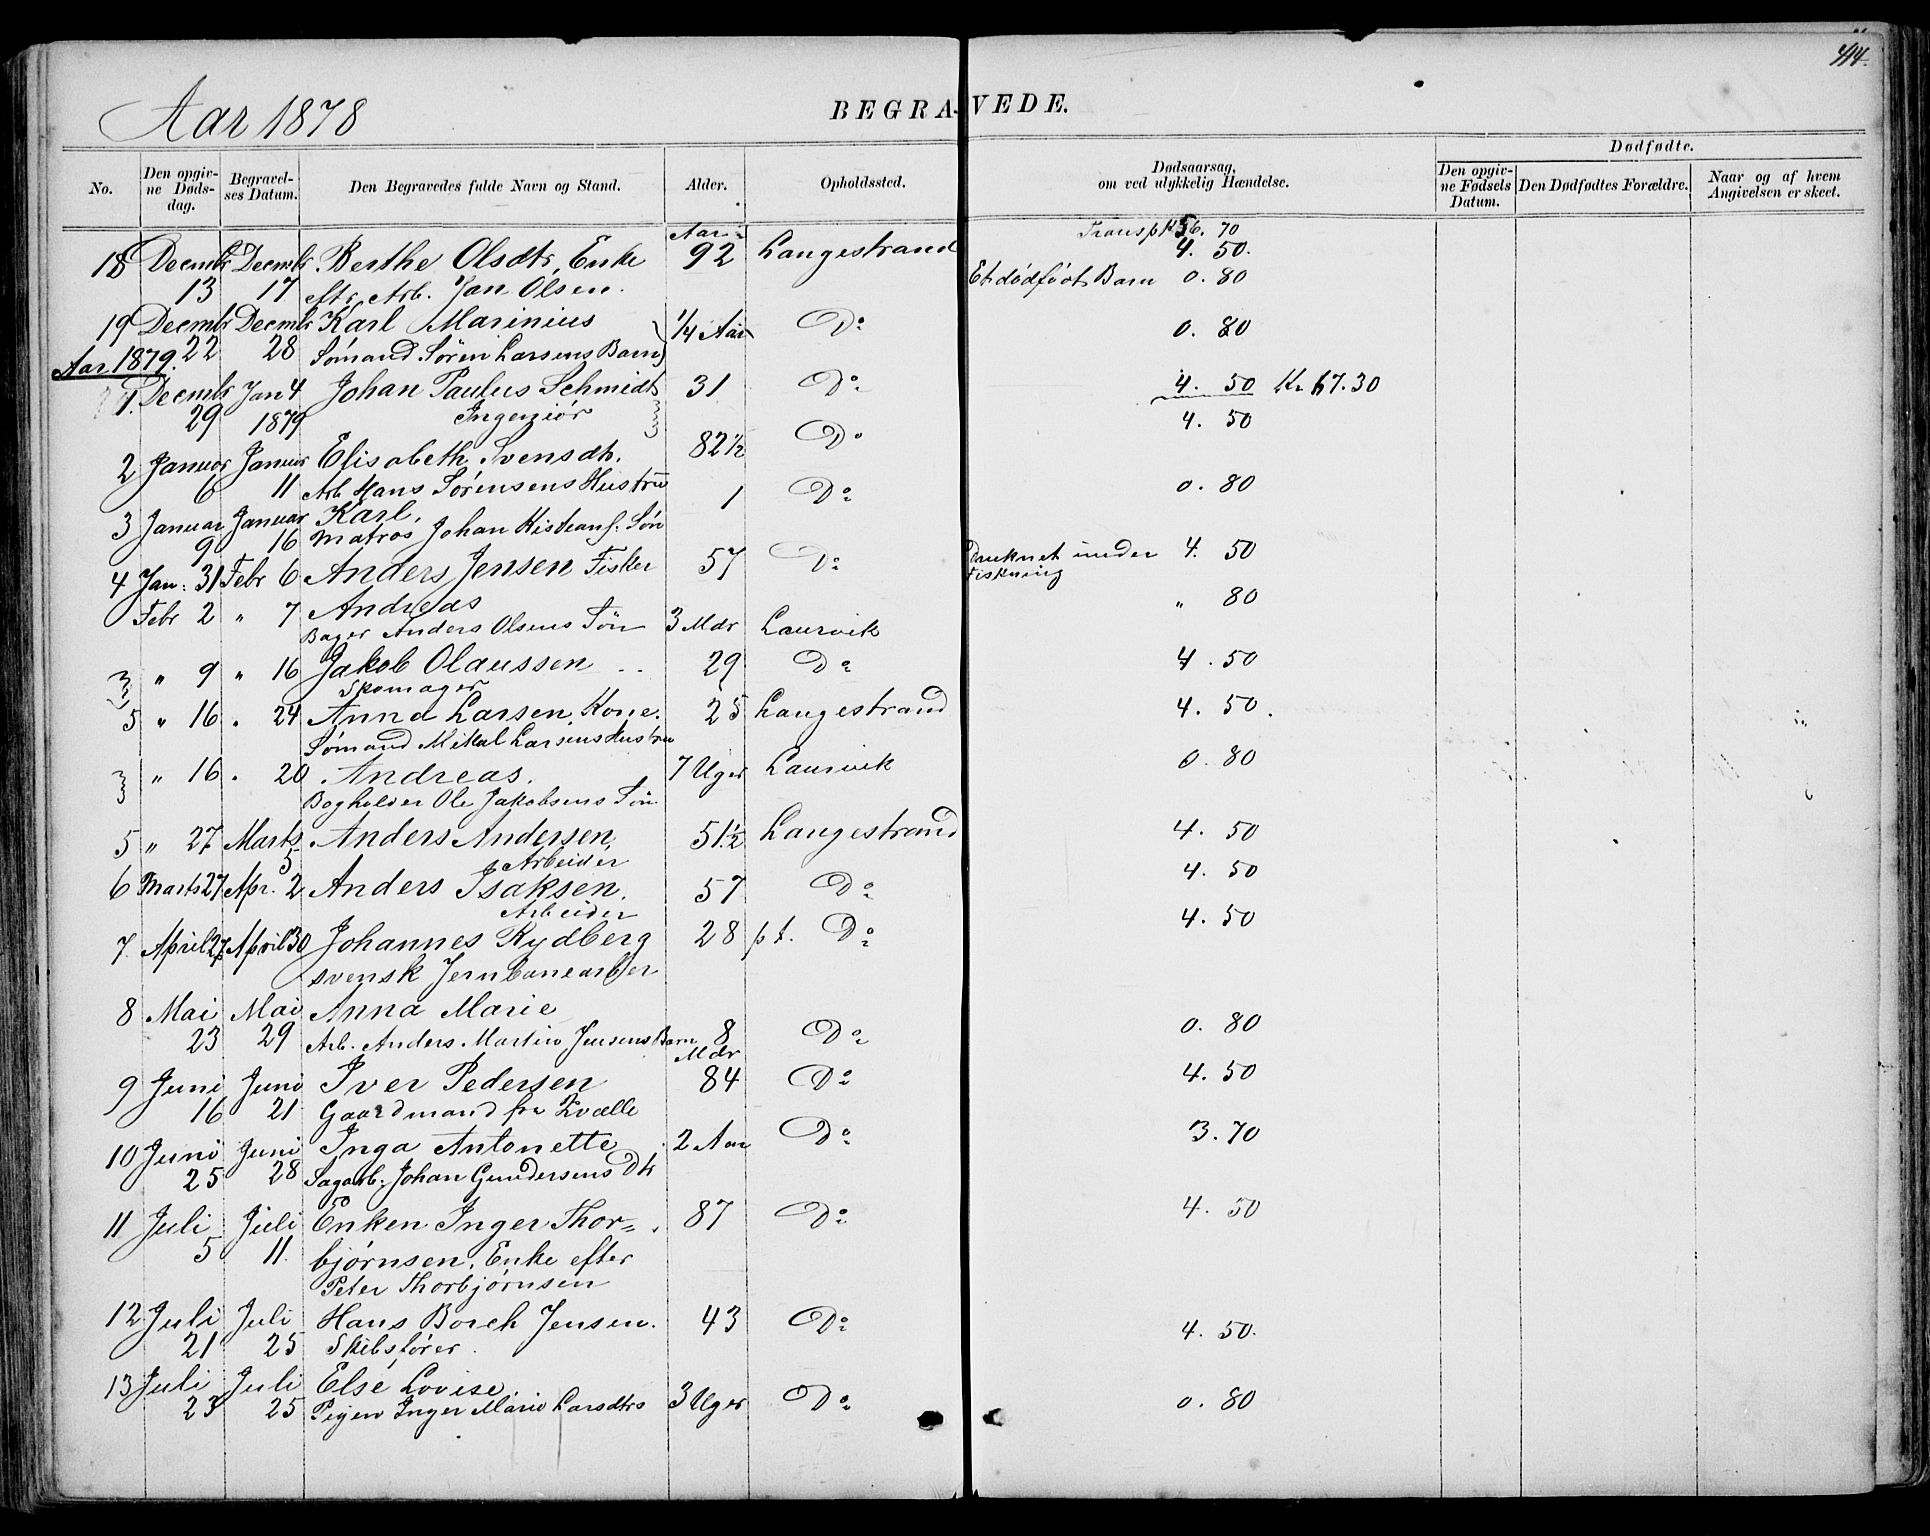 414.
Aar 1878
BEGRAVEDE.
No.
Den opgivne Dødsdag.
Begravelses Datum.
Den Begravedes fulde Navn og Stand.
Alder.
Opholdssted.
Dødsaarsag, om ved ulykkelig Hændelse.
Dødfødte.
Den opgivne Fødsels Datum.
Den Dødfødtes Forældre.
Naar og af hvem Angivelsen er skeet.
Aar Transp 56. 70
18 Decmbr Decmbr Berthe Olsdtr, Enke 92 Langestrand 4. 50.
13 17 eftr. Arb. Jan Olsen. Et dødfødt Barn 0. 80
19 Decmbr Decmbr Karl Marinius 1/4 Aar Do 0. 80
22 28 Sømand Sören Larsens Barn
Aar 1879.
1. Decmbr Jan 4 Johan Paulus Schmidt 31 Do 4. 50 Kr 67.30
29 1879 Ingeniør
2 Januar Januar Elisabeth Svensdtr. 82 1/2 Do 4. 50
6 11 Arb Hans Sørensens Hustru
3 Januar Januar Karl. 1 Do 0. 80
9 16 Matros Johan Kistians. Søn
4 Jan: 31 Febr 6 Anders Jensen Fisker 57 Do Druknet under 4. 50
Fiskning
Febr 2 " 7 Andreas 3 Mdr Laurvik " 80
Bager Anders Olsens Sön
" 9 " 16 Jakob Olaussen 29 Do 4. 50
Skomager
5 " 16 " 24 Anna Larsen, Kone. 25 Langestrand 4. 50.
Sømand Mikal Larsens Hustru
" 16 " 20 Andreas. 7 Uger Laurvik 0. 80
Bogholder Ole Jakobsens Sön
5 " 27 Marts Anders Andersen, 51 1/2 Langestrand 4. 50
5 Arbeider
6 Marts 27 Apr. 2 Anders Isaksen. 57 Do 4. 50
Arbeider
7. April 27 April 30 Johannes Rydberg 28 p t. Do 4. 50
svensk Jernbanearb/er
8 Mai Mai Anna Marie
23 29 Arb. Anders Martin Jensens Barn 8 Mdr Do 0. 80
9 Juni Juni Iver Pedersen 84 Do 4. 50
16 21 Gaardmand fra Kvælle
10 Juni Juni Inga Antonette 2 Aar Do 3. 70
25 28 Sagarb. Johan Gundersens Dtr
11 Juli Juli Enken Inger Thor= 87 Do 4. 50
5 11. bjørnsen, Enke efter
Peter Thorbjørnsen
12 Juli Juli Hans Borch Jensen. 43 Do 4. 50.
21 25 Skibsfører.
13 Juli Juli Else Lovise. 3 Uger Do 0. 80
23 25 Pigen Inger Marie Larsdtrs